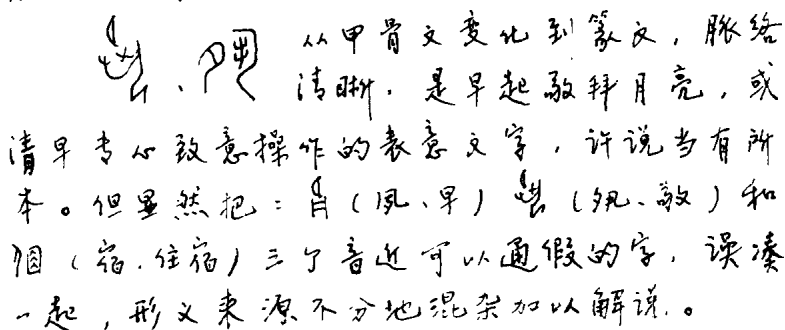 、 从甲骨文变化到篆文，脉络
清晰．是早起敬拜月亮，或
清早专心致意操作的表意文字，许说当有所
本。但显然把：（夙、早）（夙、敬）和
㐁（宿．住宿）三个音近可以通假的字，误凑
一起，形义来源不分地混杂加以解说．。